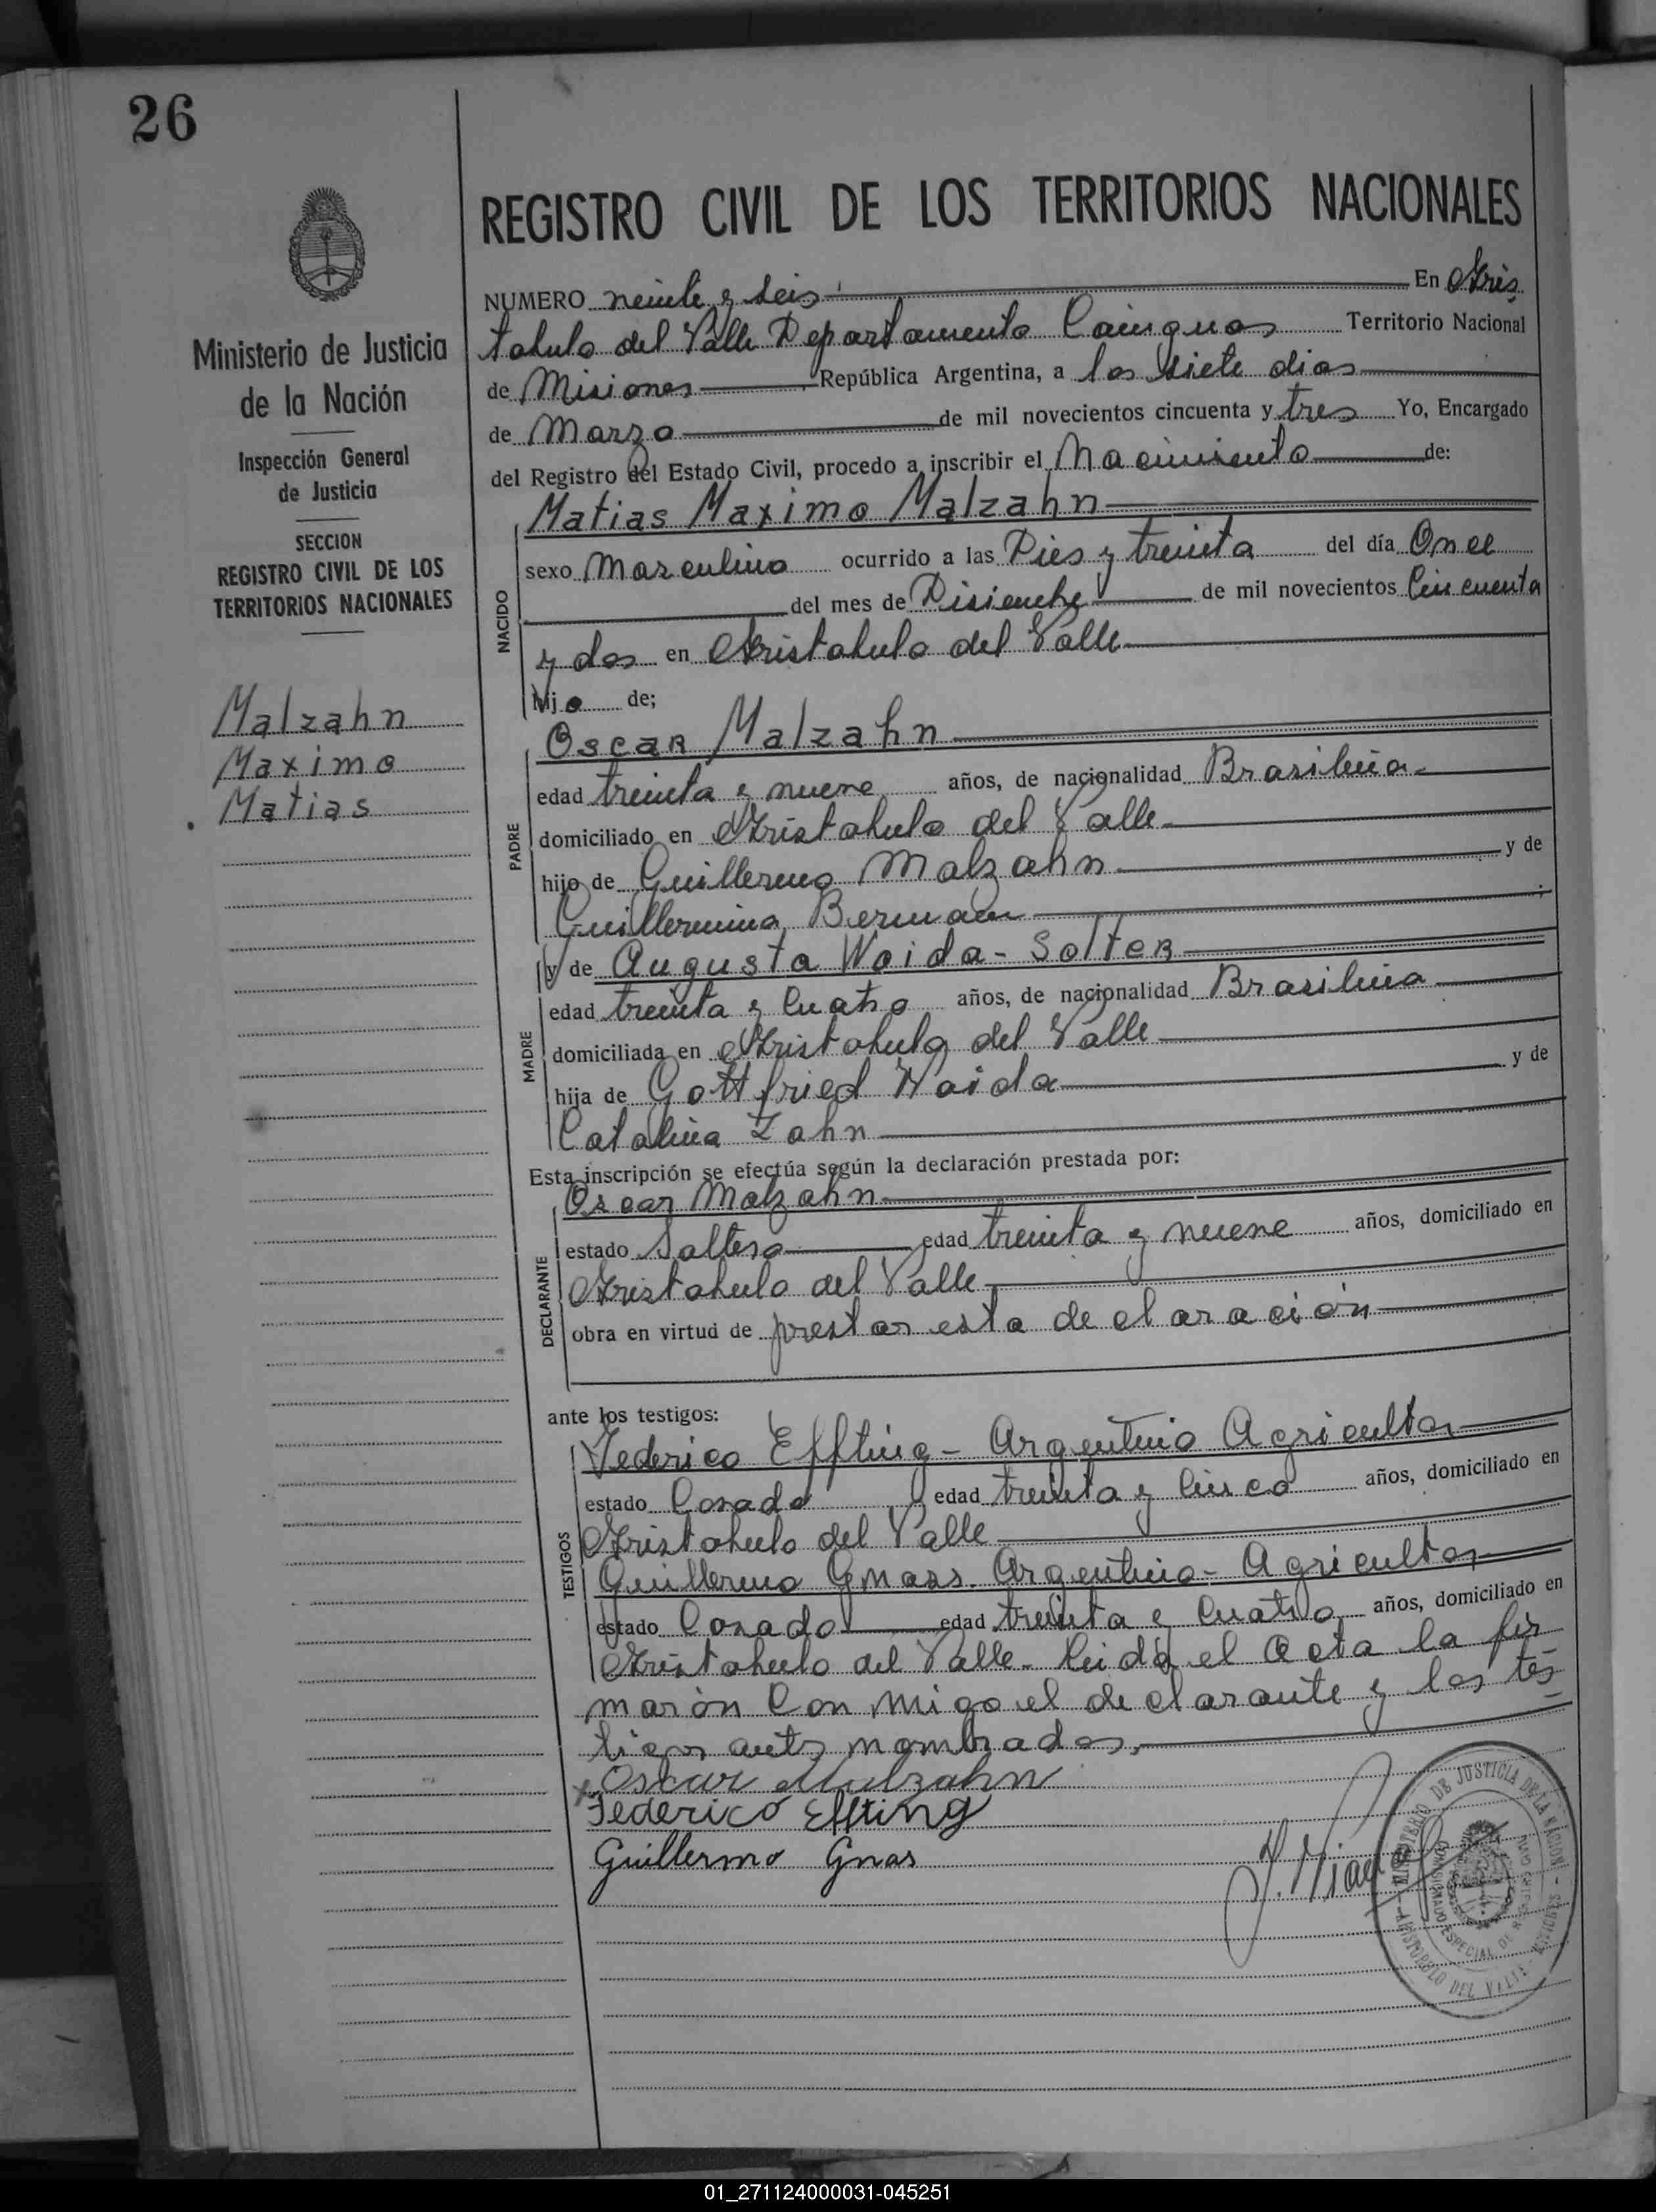 26
REGISTRO CIVIL DE LOS TERRITORIOS NACIONALES
Ministerio de Justicia
de la Nación
Inspección General
de Justicia
SECCION
REGISTRO CIVIL DE LOS
TERRITORIOS NACIONALES
Malzahn
Maximo
Matias
NUMERO veinte y seis En Aris
tobulo del Valle Departamento Cainguas Territorio Nacional
de Misiones República Argentina, a los siete dias
de Marzo de mil novecientos cincuenta y tres Yo, Encargado
del Registro del Estado Civil, procedo a inscribir el Nacimiento de:
NACIDO
Matias Maximo Malzahn
sexo Masculino ocurrido a las Dies y treinta del día Once
del mes de Disiembre de mil novecientos Cincuenta
y dos en Aristobulo del Valle
hijo de;
PADRE
Oscar Malzahn
edad treinta y nueve años, de nacionalidad Brasileña
domiciliado en Aristobulo del Valle
hijo de Guillermo Malzahn y de
Guillermina Berman
MADRE
y de Augusta Waida - Solter
edad treinta y cuatro años, de nacionalidad Brasileña
domiciliada en Aristobulo del Valle
hija de Gottfried Waida y de
Catalina Zahn
Esta inscripción se efectúa según la declaración prestada por:
DECLARANTE
Oscar Malzahn
estado Soltero edad treinta y nueve años, domiciliado en
Aristobulo del Valle
obra en virtud de prestar esta declaración
ante los testigos:
TESTIGOS
Federico Effting - Argentino Agricultor
estado Casado edad treinta y cinco años, domiciliado en
Aristobulo del Valle
Guillermo Gnass. Argentino - Agricultor
estado Casado edad treinta y cuatro años, domiciliado en
Aristobulo del Valle. Leida el Acta la fir
marón con migo el declarante y los tes
tigos antes nombrados.
x Oscar Malzahn
Federico Effting
Guillermo Gnas
MINISTERIO DE JUSTICIA DE LA NACION
ARISTOBULO DEL VALLE - MISIONES
01_271124000031-045251